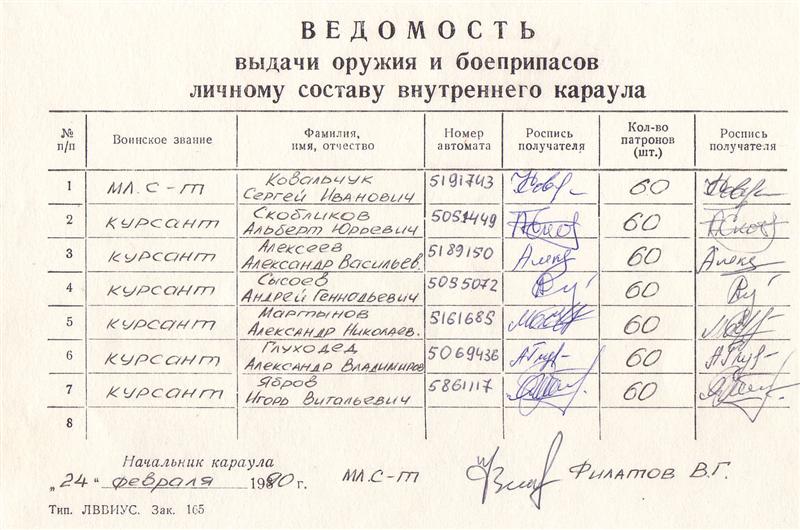 ВЕДОМОСТЬ
выдачи оружия и боеприпасов
личному составу внутреннего караула
№ п/п Воинское звание Фамилия, имя, отчество Номер автомата Роспись получателя Кол-во патронов (шт.) Роспись получателя
1 мл. с-т Ковальчук Сергей Иванович 5191743 60
2 курсант Скобликов Альберт Юрьевич 5051449 60
3 курсант Алексеев Александр Васильев. 5189150 Алекс 60 Алекс
4 курсант Сысоев Андрей Геннадьевич 5035072 60
5 курсант Мартынов Александр Николаев. 5161685 60
6 курсант Глуходед Александр Владимиров 5069436 60
7 курсант Ябров Игорь Витальевич 5861117 60
8
Начальник караула
„24“ февраля 1990 г. мл. с-т Филатов В.Г.
Тип. ЛВВИУС. Зак. 165